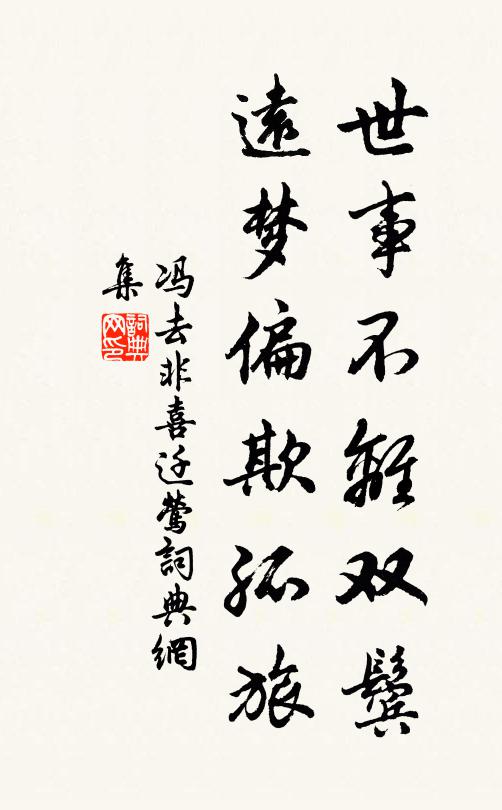 世事不離双鬓
遠梦偏欺孤旅
冯去非喜迁莺詞典網
集
詞典网印